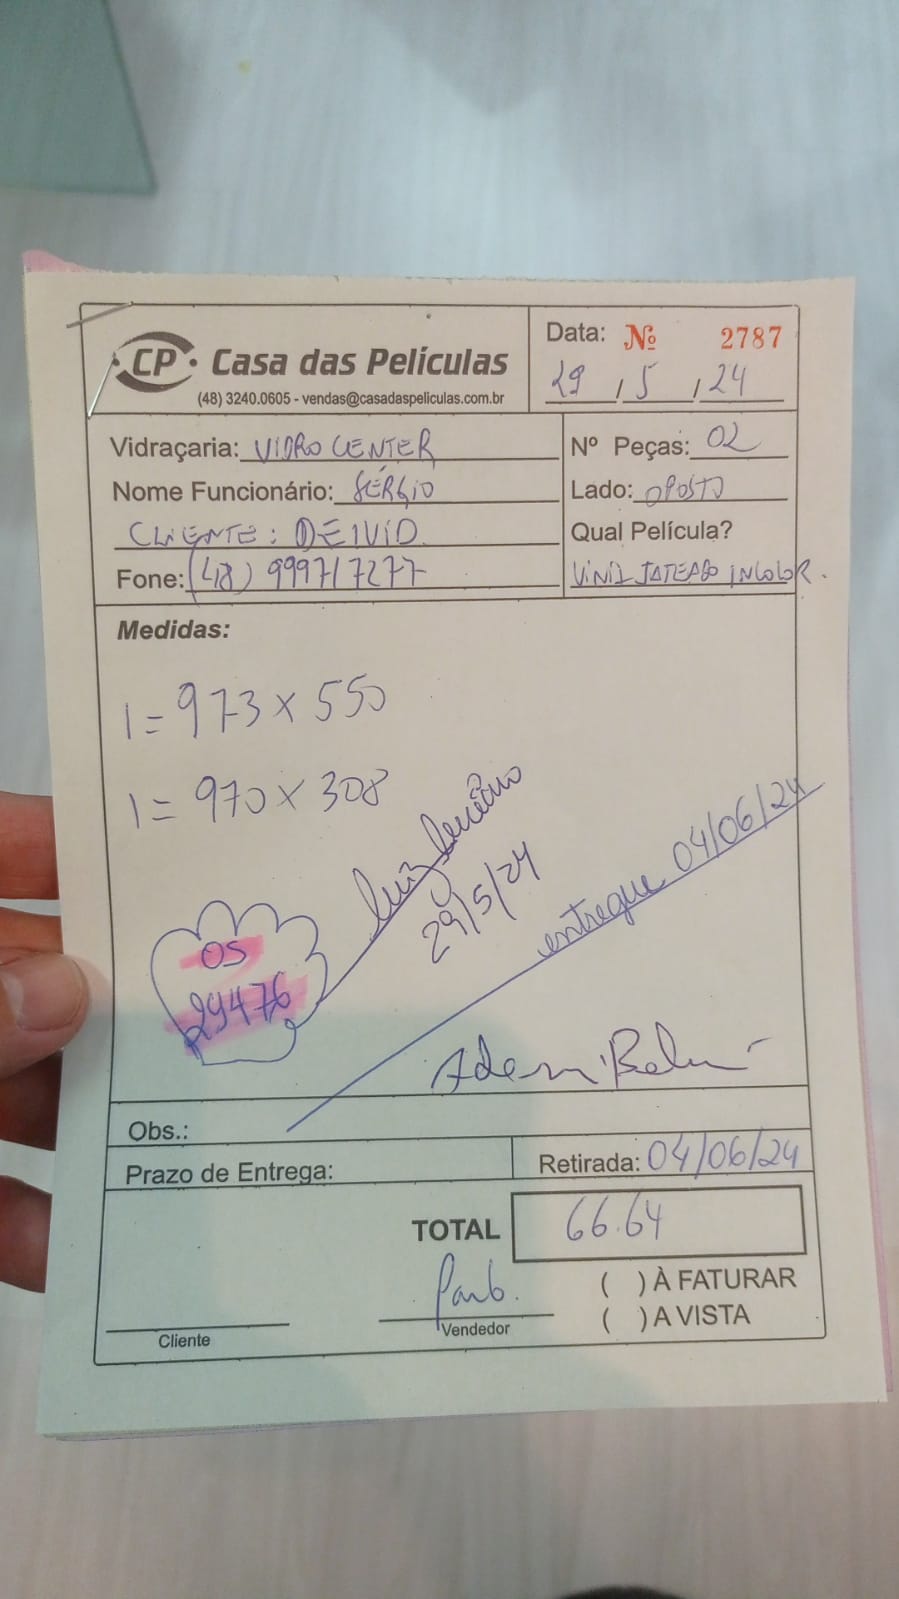 CP Casa das Películas
(48) 3240.0605 - vendas@casadaspeliculas.com.br
Data: Nº 2787
29 / 5 / 24
Vidraçaria: VIDRO CENTER
Nome Funcionário: SÉRGIO
CLIENTE: DEIVID
Fone: (48) 99971 7277
Nº Peças: 02
Lado: OPOSTO
Qual Película?
VINIL JATEADO INCOLOR.
Medidas:
1 = 973 x 550
1 = 970 x 308
Luiz
29/5/24
entregue 04/06/24
OS
29476
Obs.:
Prazo de Entrega:
Retirada: 04/06/24
TOTAL 66.64
Cliente
Vendedor
( ) À FATURAR
( ) A VISTA